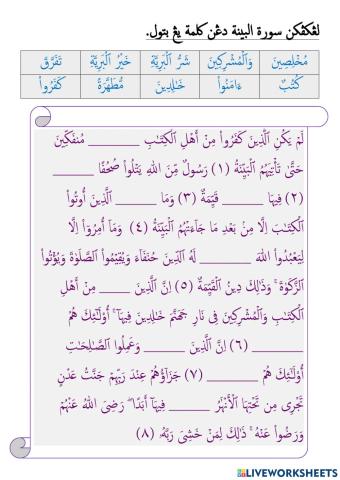 لڠكڤكن سورة البينة دڠن كلمة يڠ بتول.
مُخْلِصِينَ وَالْمُشْرِكِينَ شَرُّ الْبَرِيَّةِ خَيْرُ الْبَرِيَّةِ تَفَرَّقَ
كُتُبٌ ءَامَنُوا۟ خَـٰلِدِينَ مُّطَهَّرَةً كَفَرُوا۟
لَمْ يَكُنِ الَّذِينَ كَفَرُوا۟ مِنْ أَهْلِ الْكِتَـٰبِ ________ مُنفَكِّينَ
حَتَّىٰ تَأْتِيَهُمُ الْبَيِّنَةُ (١) رَسُولٌ مِّنَ اللَّهِ يَتْلُوا۟ صُحُفًا ______
(٢) فِيهَا ______ قَيِّمَةٌ (٣) وَمَا ______ الَّذِينَ أُوتُوا۟
الْكِتَـٰبَ إِلَّا مِنْ بَعْدِ مَا جَآءَتْهُمُ الْبَيِّنَةُ (٤) وَمَآ أُمِرُوٓا۟ إِلَّا
لِيَعْبُدُوا۟ اللَّهَ ________ لَهُ الدِّينَ حُنَفَآءَ وَيُقِيمُوا۟ الصَّلَوٰةَ وَيُؤْتُوا۟
الزَّكَوٰةَ ۚ وَذَٰلِكَ دِينُ الْقَيِّمَةِ (٥) إِنَّ الَّذِينَ ______ مِنْ أَهْلِ
الْكِتَـٰبِ وَالْمُشْرِكِينَ فِى نَارِ جَهَنَّمَ خَـٰلِدِينَ فِيهَآ ۚ أُو۟لَـٰٓئِكَ هُمْ
________ (٦) إِنَّ الَّذِينَ ______ وَعَمِلُوا۟ الصَّـٰلِحَـٰتِ
أُو۟لَـٰٓئِكَ هُمْ ________ (٧) جَزَآؤُهُمْ عِندَ رَبِّهِمْ جَنَّـٰتُ عَدْنٍ
تَجْرِى مِن تَحْتِهَا الْأَنْهَـٰرُ ______ فِيهَآ أَبَدًا ۖ رَضِىَ اللَّهُ عَنْهُمْ
وَرَضُوا۟ عَنْهُ ۚ ذَٰلِكَ لِمَنْ خَشِىَ رَبَّهُۥ (٨)
LIVEWORKSHEETS